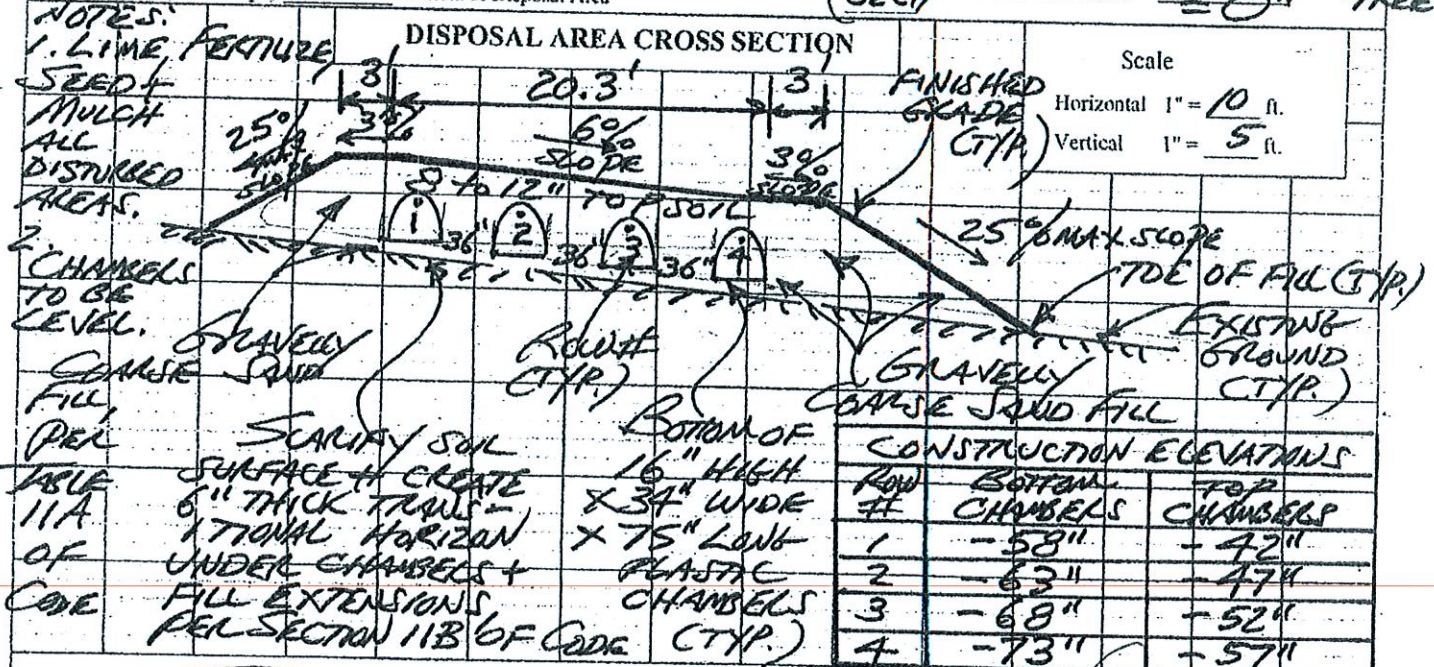 Disposal Area
TREE
NOTES:
1. LIME, FERTILIZE,
SEED +
MULCH
ALL
DISTURBED
AREAS.
2.
CHAMBERS
TO BE
LEVEL.
DISPOSAL AREA CROSS SECTION
Scale
Horizontal 1" = 10 ft.
Vertical 1" = 5 ft.
3'
20.3'
3'
FINISHED
GRADE
(TYP.)
25%
MAX
SLOPE
3%
6%
SLOPE
3%
SLOPE
8 to 12" TOPSOIL
1
36"
2
36"
3
36"
4
25% MAX SLOPE
TOE OF FILL (TYP.)
EXISTING
GROUND
(TYP.)
GRAVELLY
COARSE SAND
FILL
PER
TABLE
11A
OF
CODE
ROW #
(TYP.)
GRAVELLY
COARSE SAND FILL
SCARIFY SOIL
SURFACE + CREATE
6" THICK TRANS-
ITIONAL HORIZON
UNDER CHAMBERS +
FILL EXTENSIONS
PER SECTION 11B OF CODE
BOTTOM OF
16" HIGH
X 34" WIDE
X 75" LONG
PLASTIC
CHAMBERS
(TYP.)
CONSTRUCTION ELEVATIONS
ROW # BOTTOM CHAMBERS TOP CHAMBERS
1 -58" -42"
2 -63" -47"
3 -68" -52"
4 -73" -57"